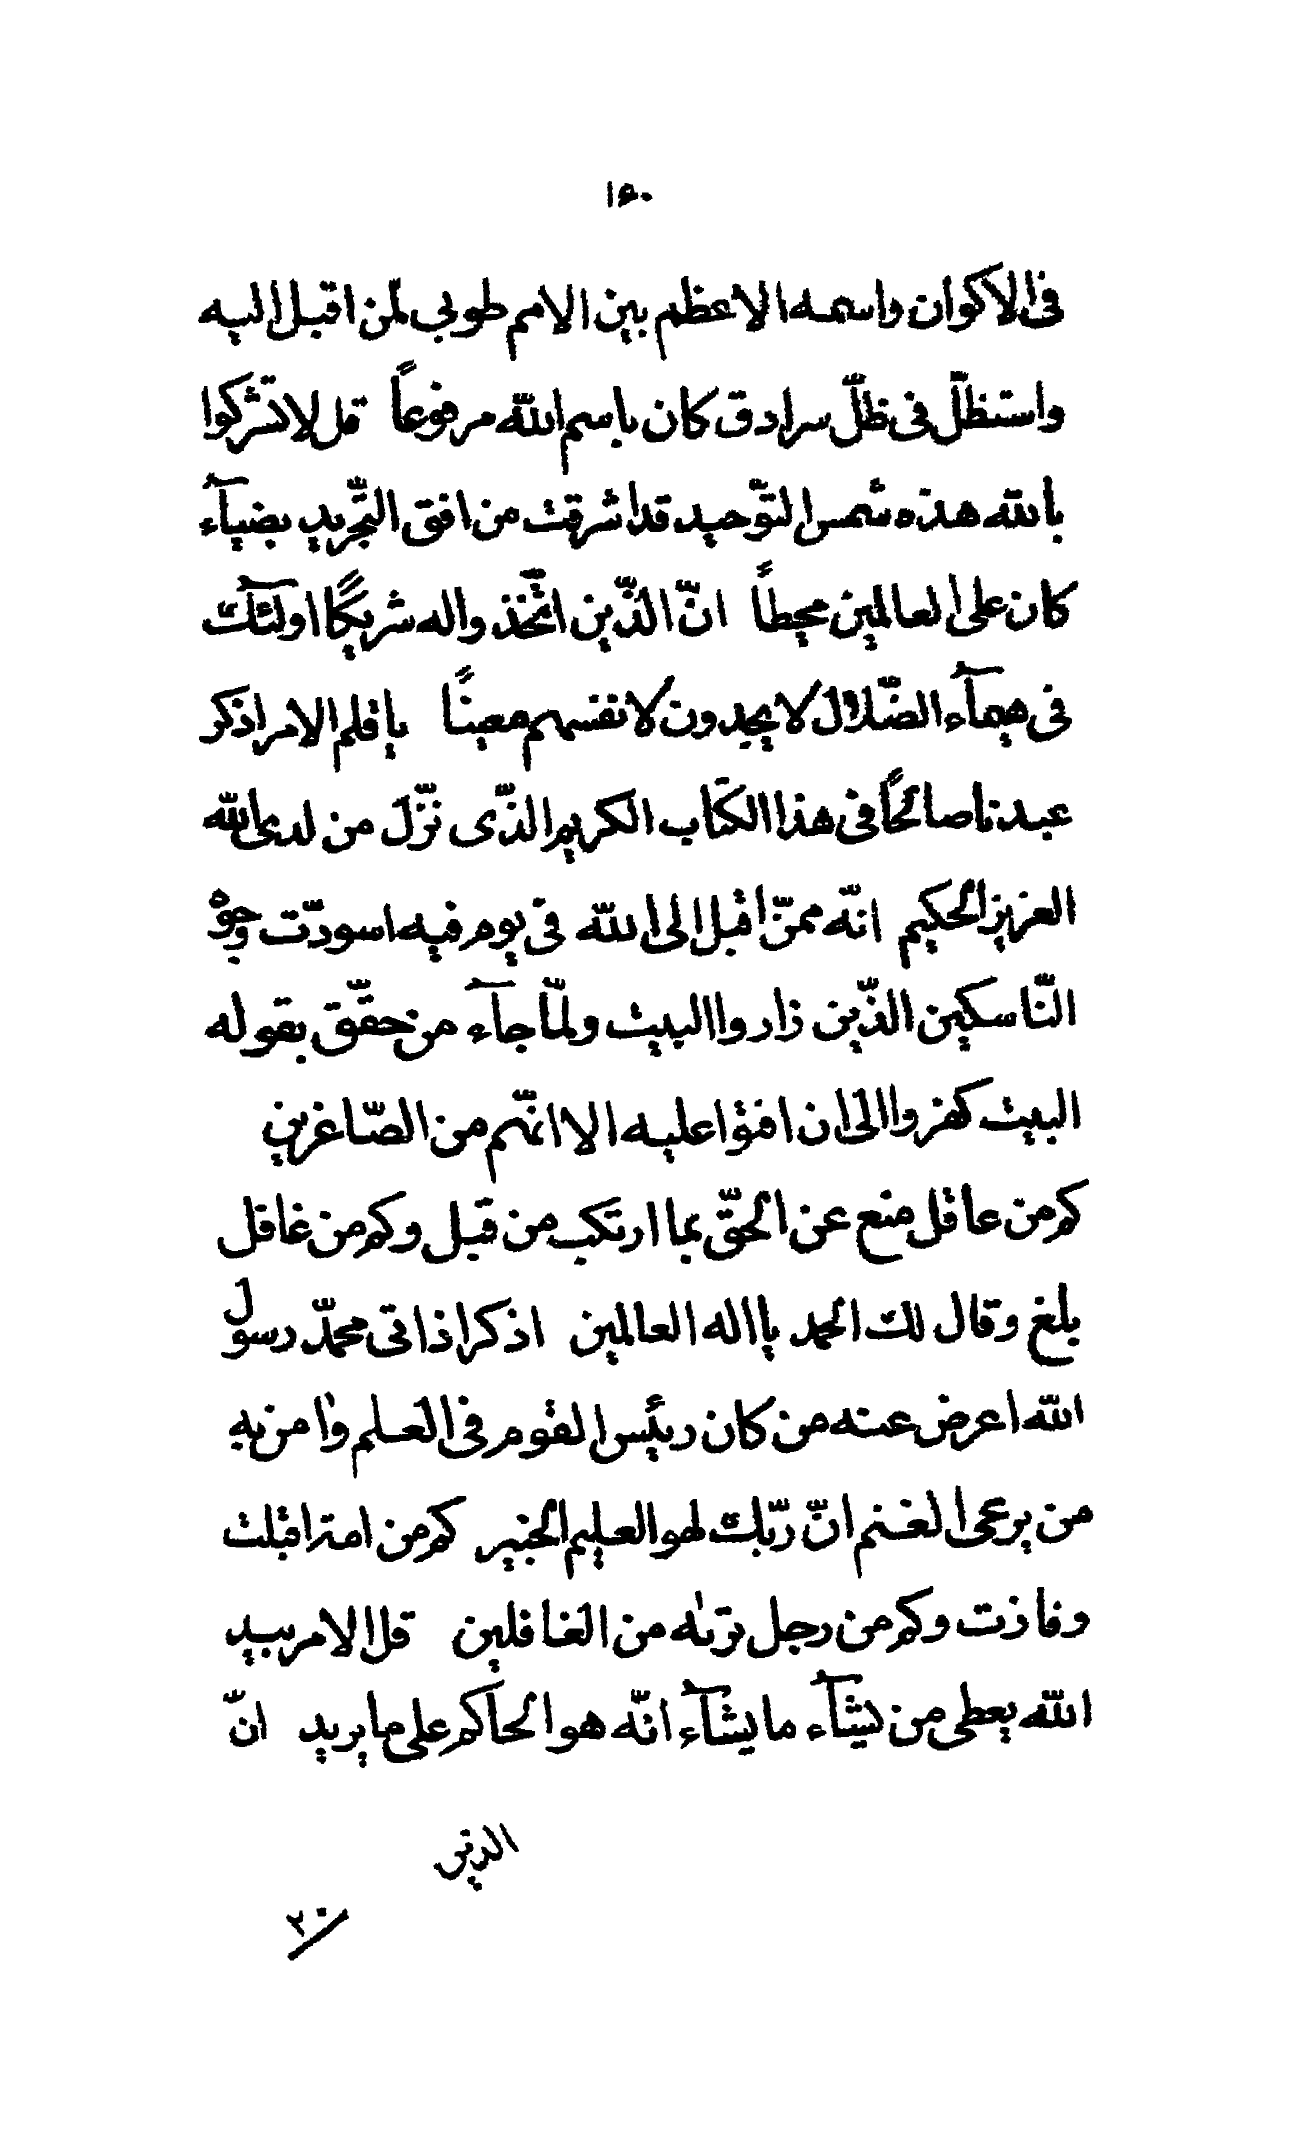 ١٥٠
فی الاکوان واسمه الاعظم بین الامم طوبی لمن اقبل الیه
واستظلّ فی ظلّ سرادق کان باسم الله مرفوعاً قل لا تشرکوا
بالله هذه شمس التّوحید قد اشرقت من افق التّجرید بضیآء
کان علی العالمین محیطاً انّ الّذین اتّخذوا له شریکًا اولئک
فی هیمآء الضّلال لا یجدون لانفسهم معینًا یا قلم الامر اذکر
عبدنا صالحًا فی هذا الکتاب الکریم الّذی نزّل من لدی الله
العزیز الحکیم انّه ممّن اقبل الی الله فی یوم فیه اسودّت وجوه
النّاسکین الّذین زاروا البیت ولمّا جآء من حقّق بقوله
البیت کفروا الی ان افتوا علیه الا انّهم من الصّاغرین
کم من عاقل منع عن الحقّ بما ارتکب من قبل وکم من غافل
بلغ وقال لک الحمد یا اله العالمین اذکر اذ اتی محمّد رسول
الله اعرض عنه من کان رئیس القوم فی العلم واٰمن به
من یرعی الغنم انّ ربّک لهو العلیم الخبیر کم من امة اقبلت
وفازت وکم من رجل ترىٰه من الغافلین قل الامر بید
الله یعطی من یشآء ما یشآء انّه هو الحاکم علی ما یرید انّ
الذین
٢٠